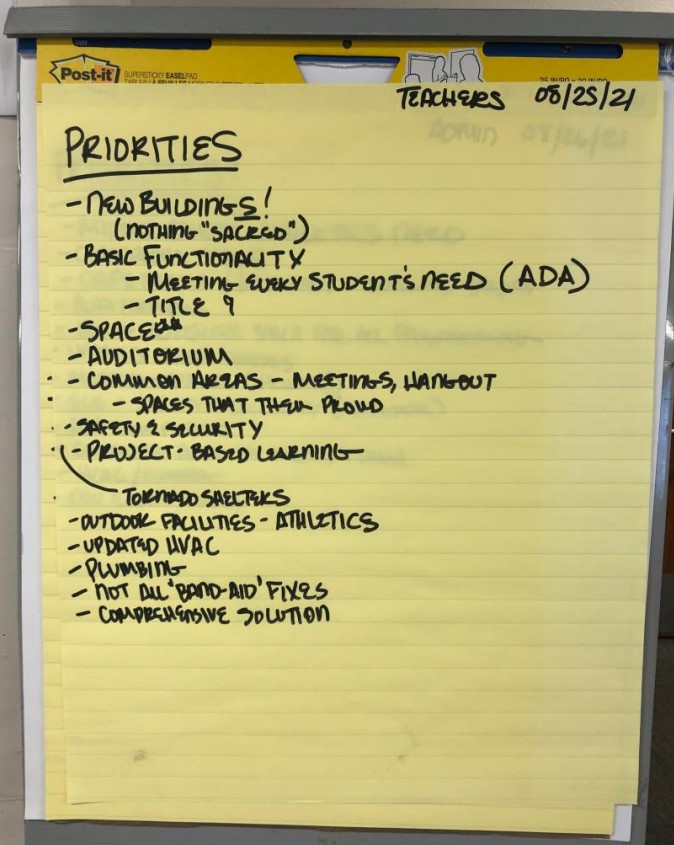 Post-it
SUPERSTICKY EASEL PAD
TEACHERS 08/25/21
PRIORITIES
- NEW BUILDINGS!
(NOTHING "SACRED")
- BASIC FUNCTIONALITY
- MEETING EVERY STUDENT'S NEED (ADA)
- TITLE 9
- SPACE**
- AUDITORIUM
- COMMON AREAS - MEETINGS, HANGOUT
- SPACES THAT THEM PROUD
- SAFETY & SECURITY
- PROJECT-BASED LEARNING
TORNADO SHELTERS
- OUTDOOR FACILITIES - ATHLETICS
- UPDATED HVAC
- PLUMBING
- NOT ALL 'BAND-AID' FIXES
- COMPREHENSIVE SOLUTION